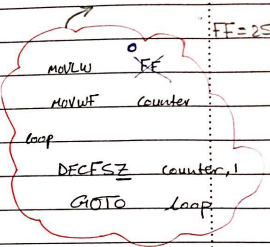 FF = 25
0
MOVLW FF
MOVWF counter
loop
DECFSZ counter, 1
GOTO loop